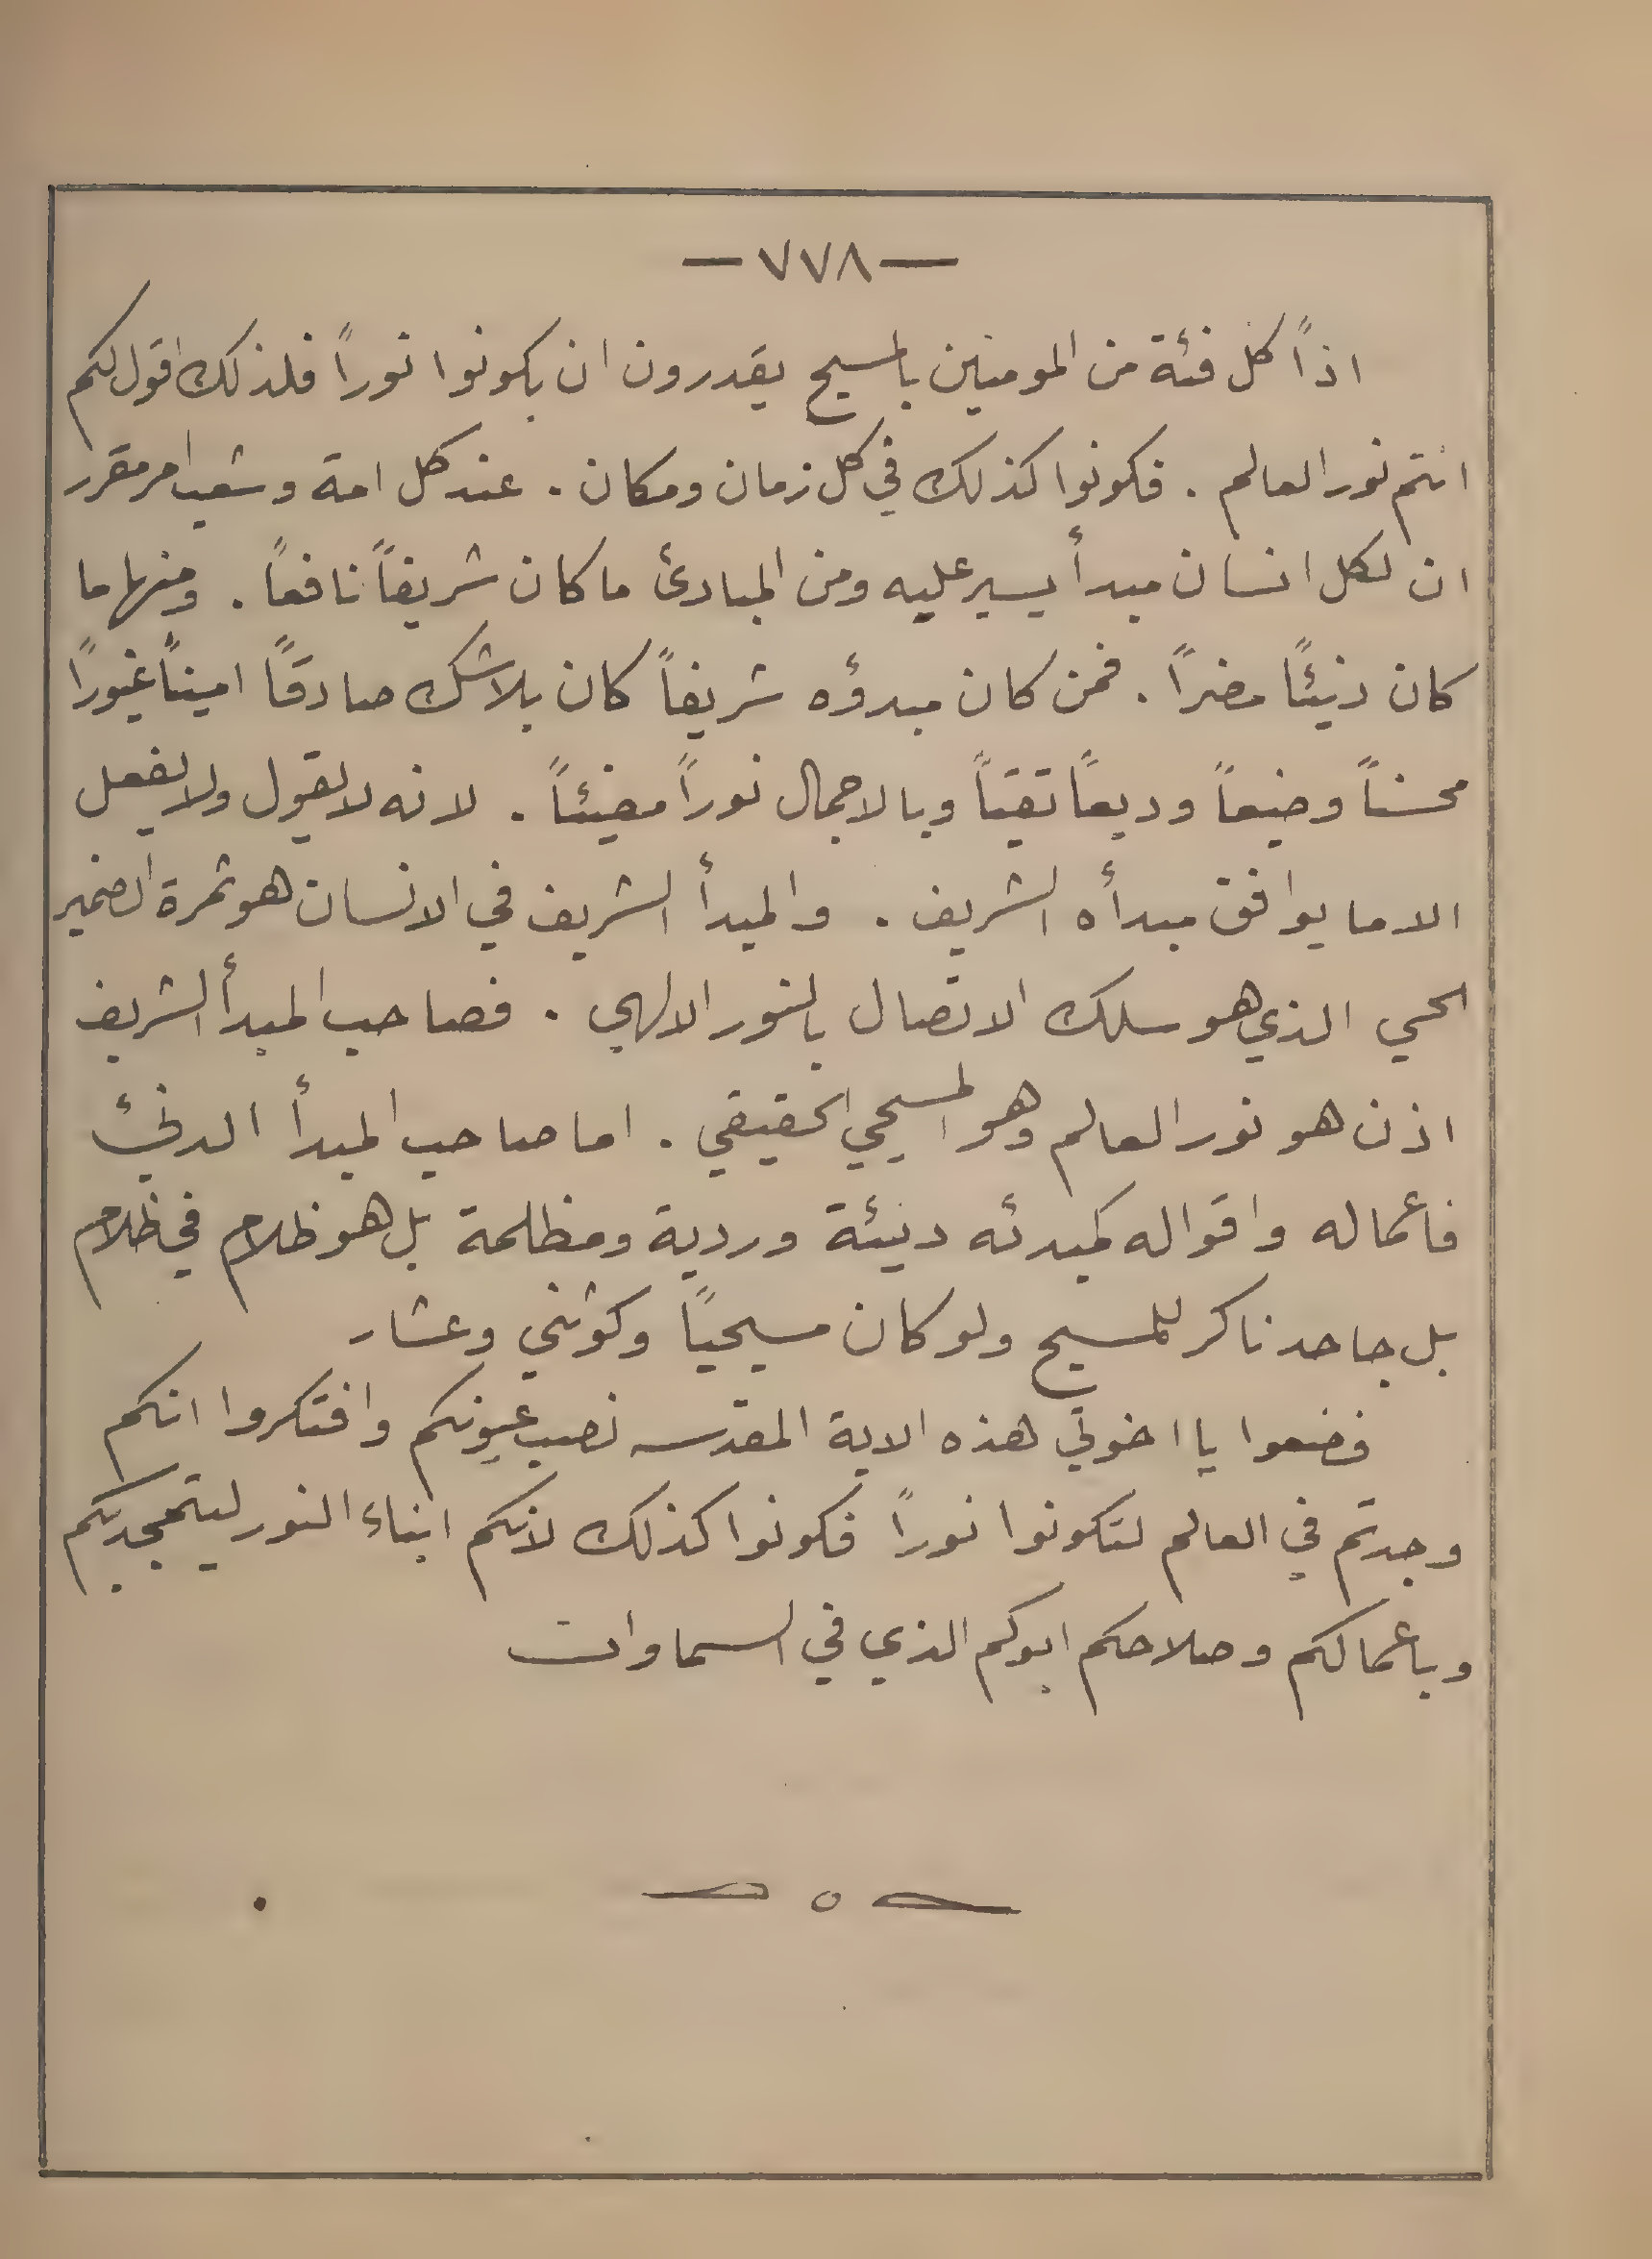 —٧٧٨—
اذاً كل فئة من المومنين بالمسيح يقدرون ان يكونوا نوراً فلذلك اقول لكم
انتم نور العالم . فكونوا كذلك في كل زمان ومكان . عند كل امة وشعب امر مقرر
ان لكل انسان مبدأ يسير عليه ومن المبادئ ما كان شريفاً نافعاً . ومنها ما
كان دنيئًا مضراً . فمن كان مبدؤه شريفاً كان بلا شك صادقاً اميناً غيوراً
محسناً وضيعاً وديعاً تقيّاً وبالاجمال نوراً مضيئاً . لانه لا يقول ولا يفعل
الا ما يوافق مبدأه الشريف . والمبدأ الشريف في الانسان هو ثمرة الضمير
الحي الذي هو سلك الاتصال بالنور الالهي . فصاحب المبدأ الشريف
اذن هو نور العالم وهو المسيحي الحقيقي . اما صاحب المبدأ الدنئ
فأعماله واقواله كمبدئه دنيئة وردية ومظلمة بل هو ظلام في ظلام
بل جاحد ناكر للمسيح ولو كان مسيحيًا وكوثني وعشار
فضعوا يا اخوتي هذه الاية المقدسه نصب عيونكم وافتكروا انكم
وجدتم في العالم لتكونوا نوراً فكونوا كذلك لانكم ابناء النور ليتمجد بكم
وباعمالكم وصلاحكم ابوكم الذي في السماوات